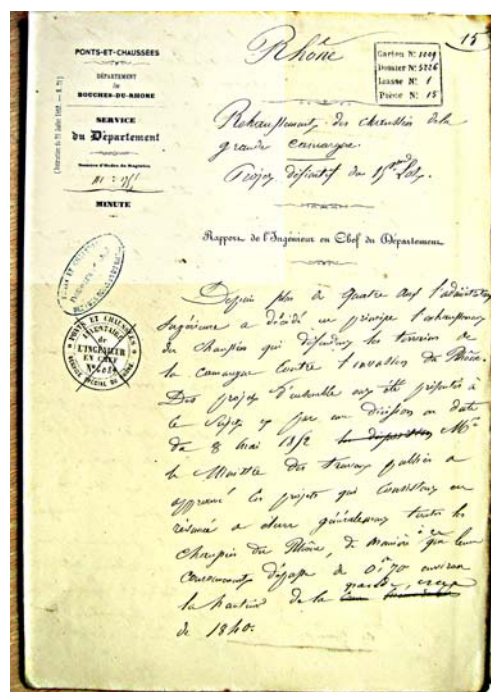 15
PONTS-ET-CHAUSSÉES
DÉPARTEMENT
des
BOUCHES-DU-RHONE
SERVICE
du Département
Numéro d'Ordre du Registre
MINUTE
Rhône
Carton Nº 1009
Dossier Nº 5226
Liasse Nº 1
Pièce Nº 15
Rehaussement des chaussées de la
grande Camargue.
Projet définitif du 15 Lot.
Rapport de l'Ingénieur en Chef du Département
PONTS ET CHAUSSÉES
INVENTAIRE
de
L'INGÉNIEUR
EN CHEF
SERVICE SPÉCIAL DU RHONE
Depuis plus de quatre ans l'administration
Supérieure a décidé en principe l'exhaussement
des chaussées qui défendent les terrains de
la Camargue contre l'invasion du Rhône.
Des projets d'ensemble ont été présentés à
ce sujet et par une décision en date
du 8 mai 1852 Mr
le Ministre des travaux publics a
approuvé ces projets qui consistent en
résumé à élever généralement toutes les
chaussées du Rhône, de manière à ce que leur
couronnement dépasse de 0m70 environ
la hauteur de la grande crue
de 1840.